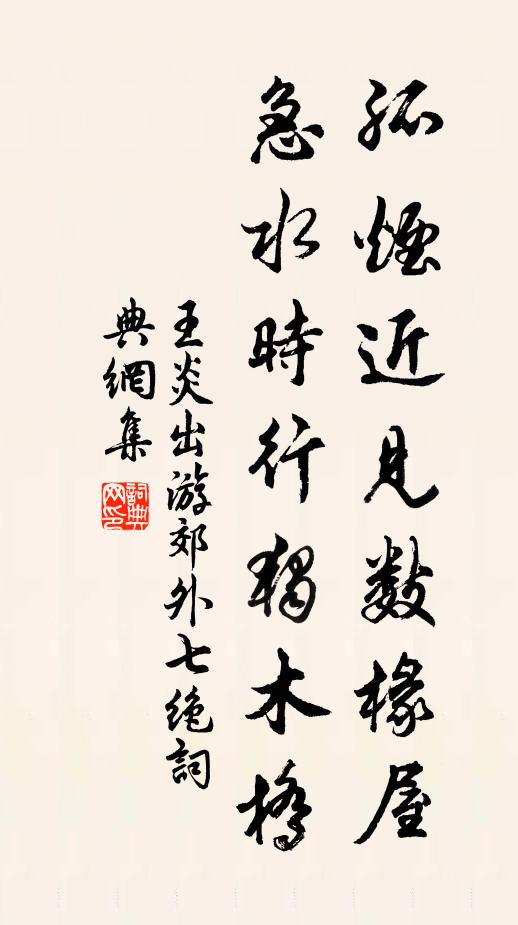 孤煙近見數椽屋
急水時行獨木橋
王炎出游郊外七絶詞
典網集
詞典
网印